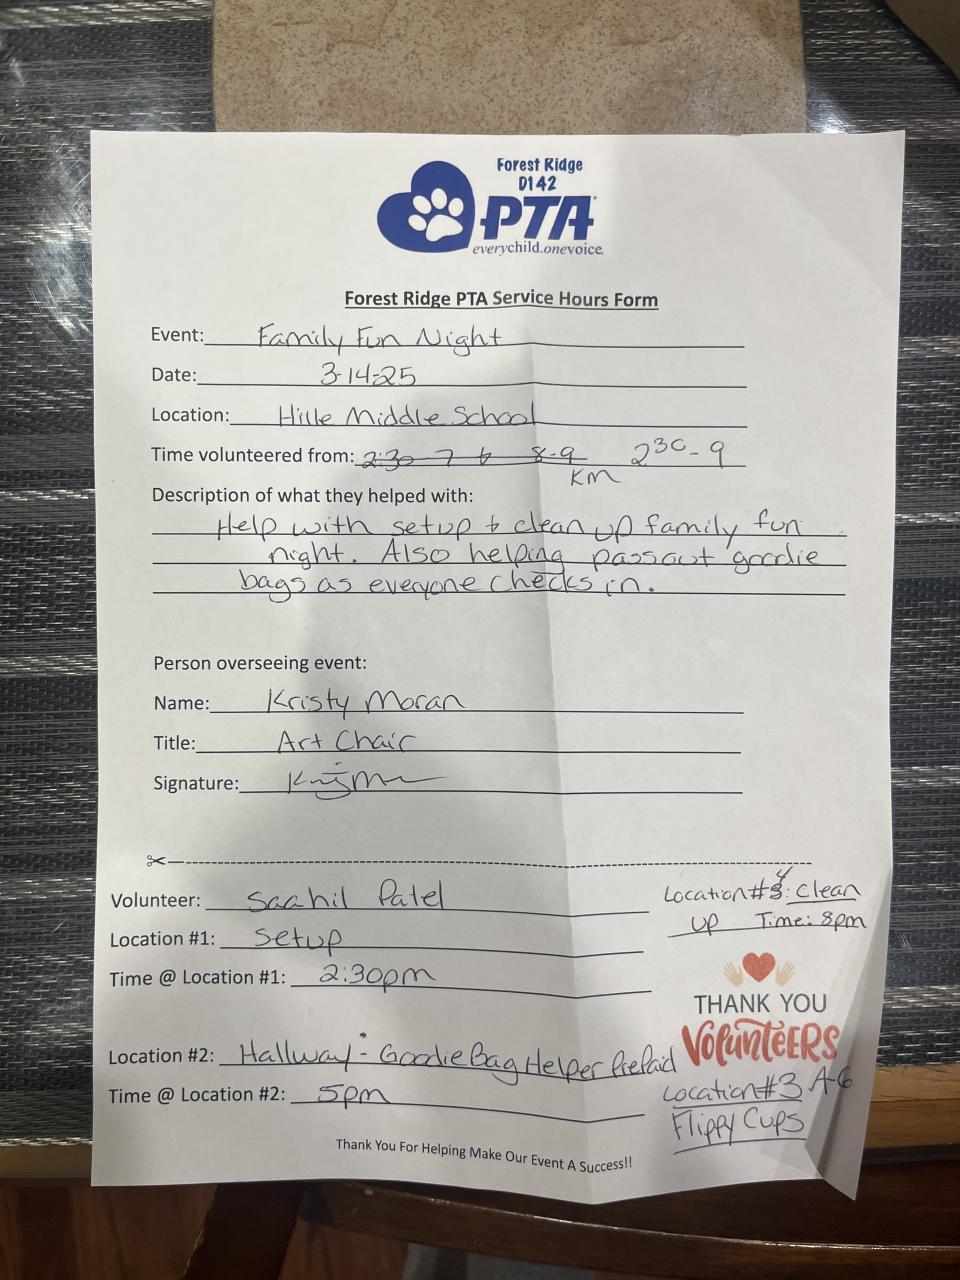 Forest Ridge
D142
PTA
everychild.onevoice.
Forest Ridge PTA Service Hours Form
Event: Family Fun Night
Date: 3-14-25
Location: Hille Middle School
Time volunteered from: 2:30-7 & 8-9 2³⁰-9
KM
Description of what they helped with:
Help with setup & clean up family fun
night. Also helping passout goodie
bags as everyone checks in.
Person overseeing event:
Name: Kristy Moran
Title: Art Chair
Signature:
Volunteer: Saahil Patel
Location #4: Clean
up Time: 8pm
Location #1: Setup
Time @ Location #1: 2:30pm
THANK YOU
VOLUNTEERS
Location #2: Hallway - Goodie Bag Helper Prepaid
A-G
Time @ Location #2: 5pm
Location #3
Flippy Cups
Thank You For Helping Make Our Event A Success!!